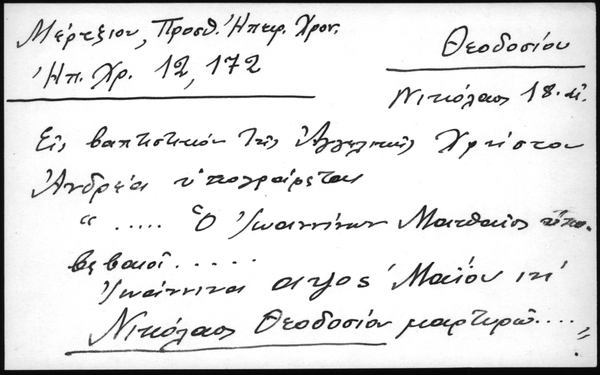 Μέρτζιου, Προσθ. Ἠπειρ. Χρον.
Θεοδοσίου
Ἠπ. Χρ. 12, 172
Νικόλαος 18. αἰ.
Εἰς βαπτιστικόν τῆς Ἀγγελικῆς Χρήστου
Ἀνδρέα ὑπογράφεται
“ ..... Ὁ Ἰωαννίνων Ματθαῖος ὑπο-
βεβαιοῖ.....
Ἰωάννινα αψος Μαΐου ιη΄
Νικόλαος Θεοδοσίου μαρτυρῶ....„